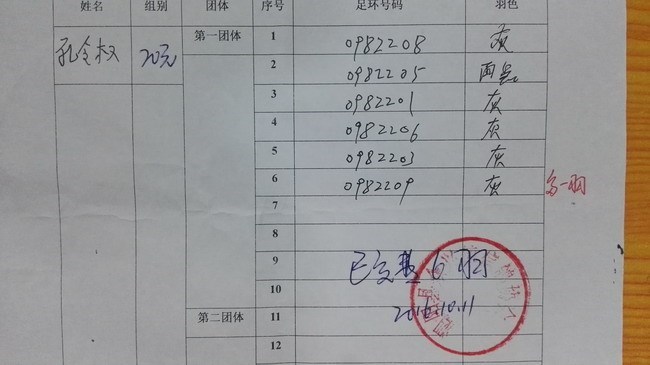 姓名 组别 团体 序号 足环号码 羽色
孔令权 20元 第一团体 1 0982208 灰
2 0982205 雨点
3 0982201 灰
4 0982206 灰
5 0982203 灰
6 0982209 灰
7
8
9 已交 6羽
10 2016.10.11
第二团体 11
12